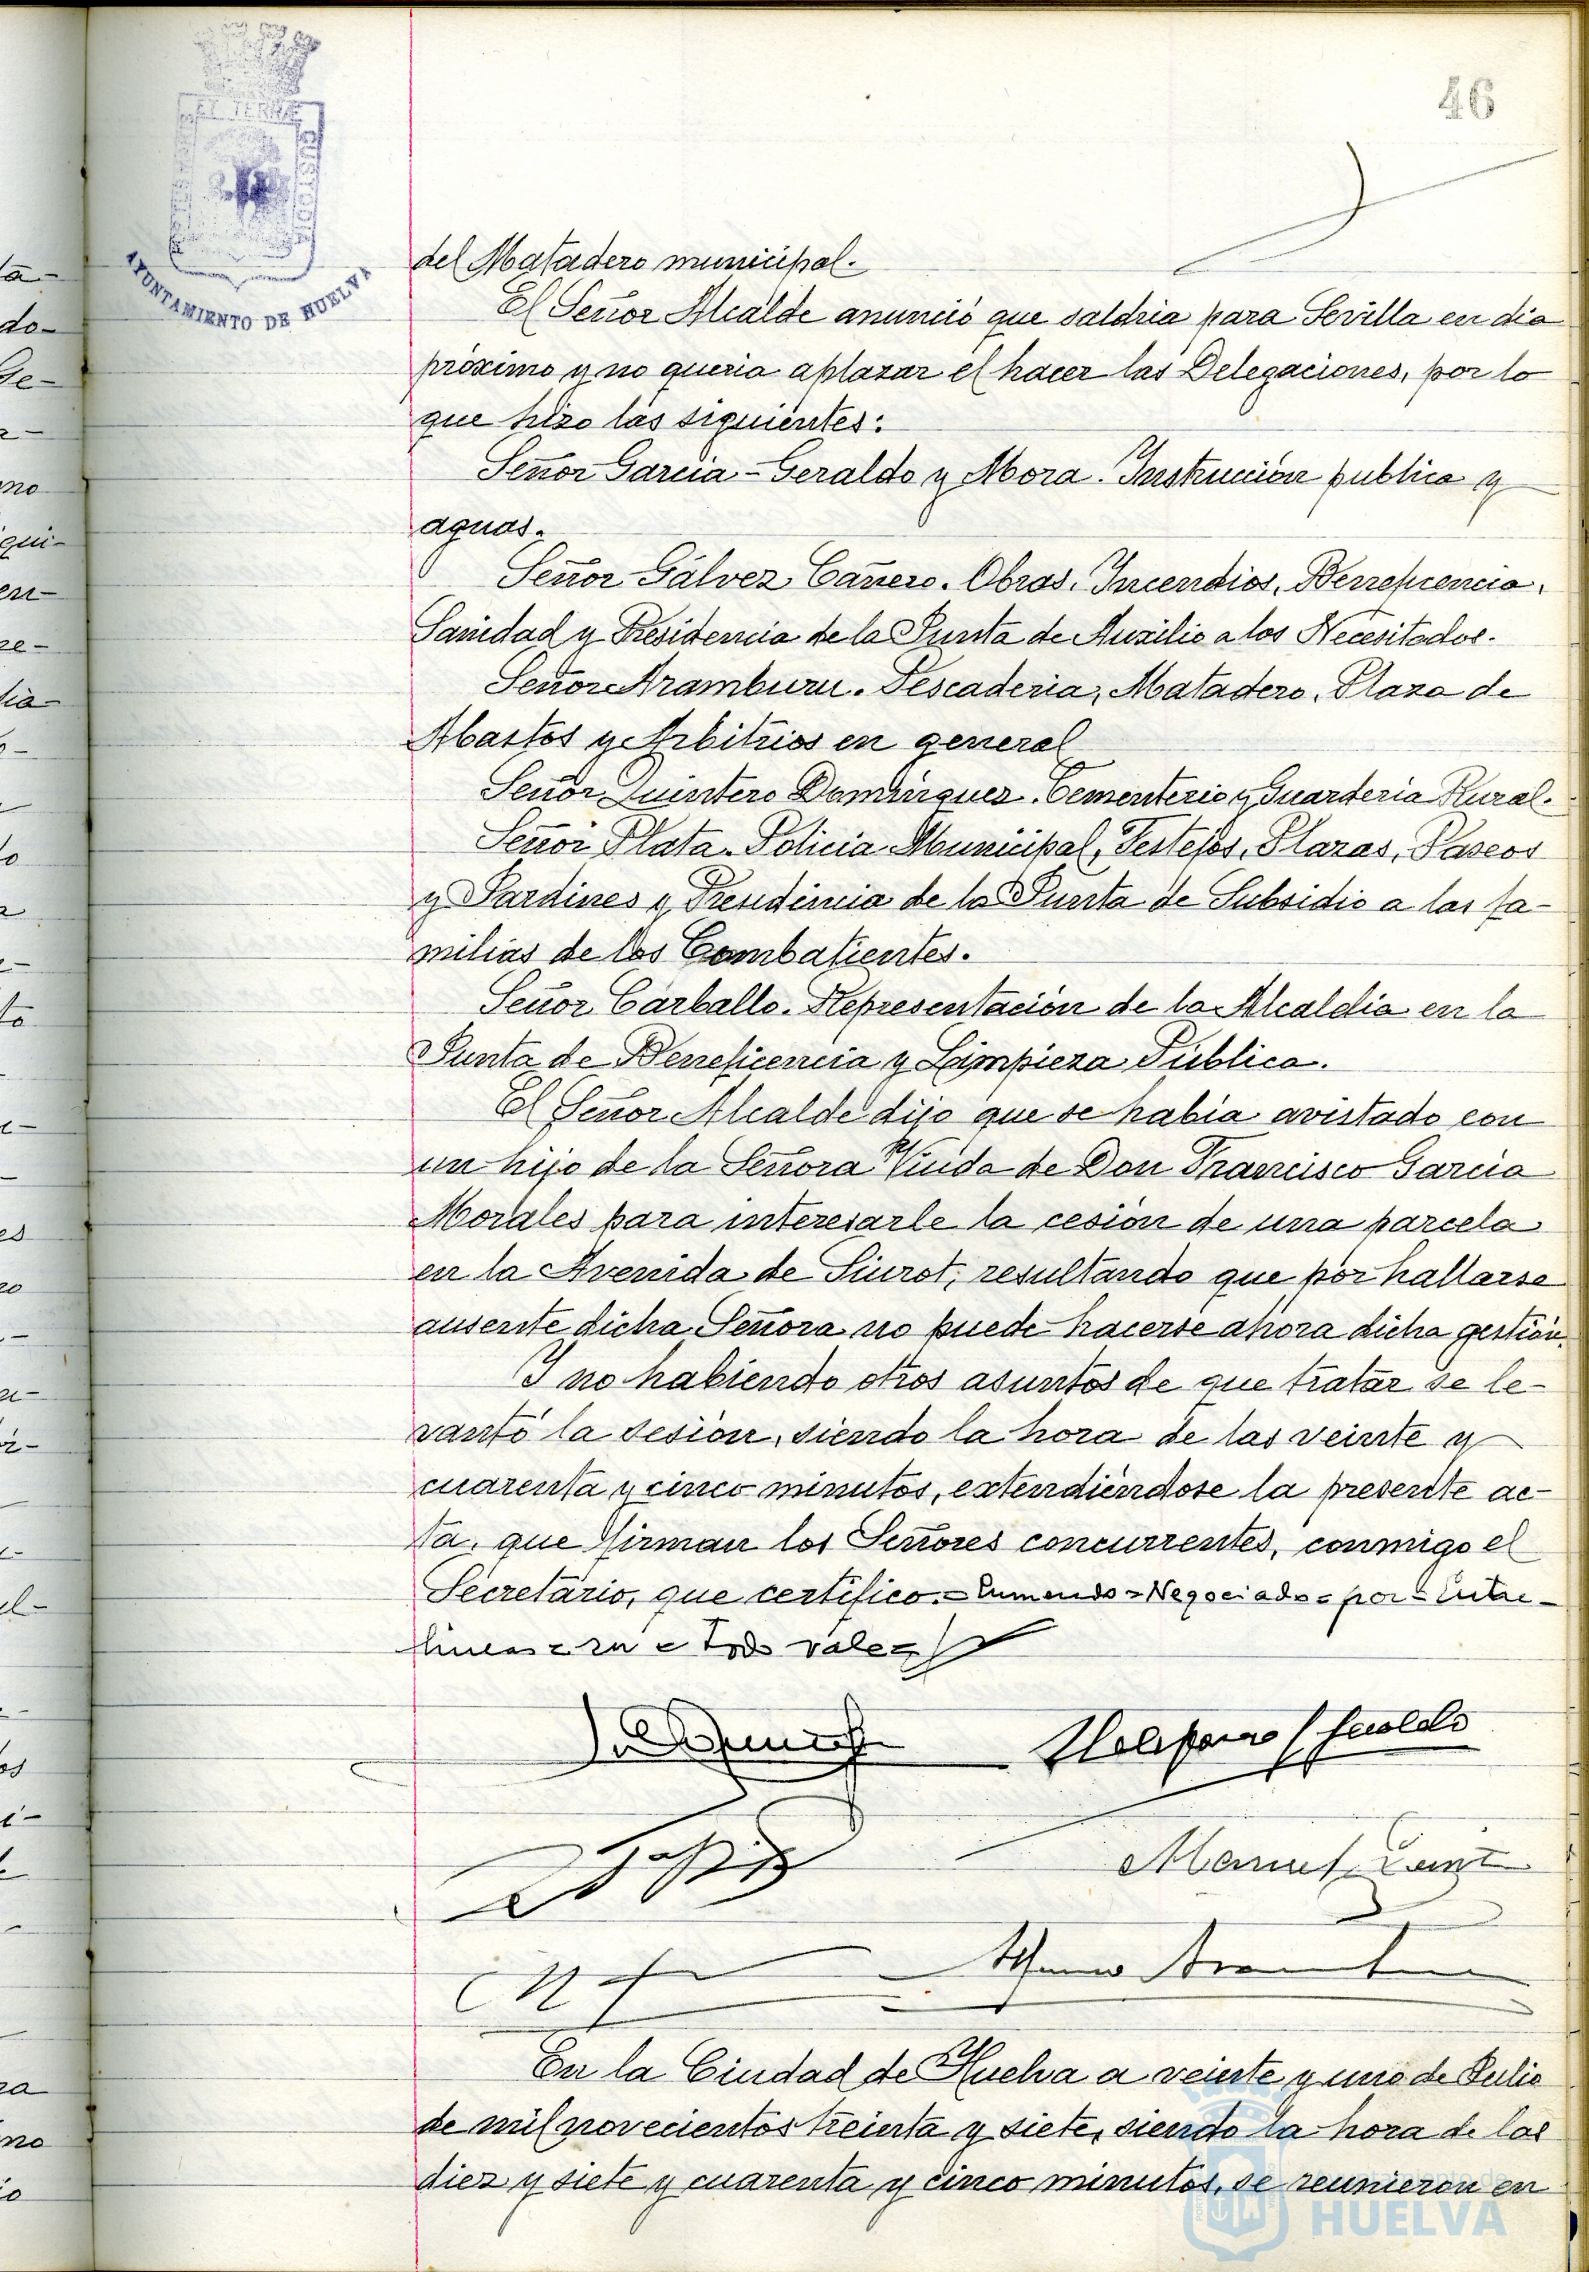 46
AYUNTAMIENTO DE HUELVA
del Matadero municipal.
El Señor Alcalde anunció que saldria para Sevilla en dia
próximo y no queria aplazar el hacer las Delegaciones, por lo
que hizo las siguientes:
Señor Garcia-Geraldo y Mora. Instrucción publica y
aguas.
Señor Gálvez Cañero. Obras, Incendios, Beneficencia,
Sanidad y Presidencia de la Junta de Auxilio a los Necesitados.
Señor Aramburu. Pescaderia, Matadero, Plaza de
Abastos y Arbitrios en general
Señor Quintero Dominguez. Cementerio y Guarderia Rural.
Señor Plata. Policia Municipal, Festejos, Plazas, Paseos
y Jardines y Presidencia de la Junta de Subsidio a las fa-
milias de los Combatientes.
Señor Carballo. Representación de la Alcaldia en la
Junta de Beneficencia y Limpieza Pública.
El Señor Alcalde dijo que se habia avistado con
un hijo de la Señora Viuda de Don Francisco Garcia
Morales para interesarle la cesión de una parcela
en la Avenida de Siurot, resultando que por hallarse
ausente dicha Señora no puede hacerse ahora dicha gestión.
Y no habiendo otros asuntos de que tratar se le-
vantó la sesión, siendo la hora de las veinte y
cuarenta y cinco minutos, extendiéndose la presente ac-
ta, que firman los Señores concurrentes, conmigo el
Secretario, que certifico.= Enmendo = Negociado = por = Entre-
lineas = = Todo vale =
Manuel
En la Ciudad de Huelva a veinte y uno de Julio
de mil novecientos treinta y siete, siendo la hora de las
diez y siete y cuarenta y cinco minutos, se reunieron en
Ayuntamiento de
HUELVA